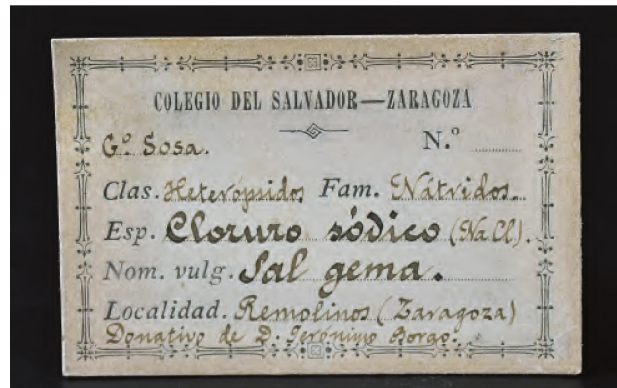 COLEGIO DEL SALVADOR—ZARAGOZA
Gº Sosa. N.º
Clas. Heterópsidos Fam. Nátridos.
Esp. Cloruro sódico (NaCl).
Nom. vulg. Sal gema.
Localidad. Remolinos (Zaragoza)
Donativo de D. Jerónimo Borao.